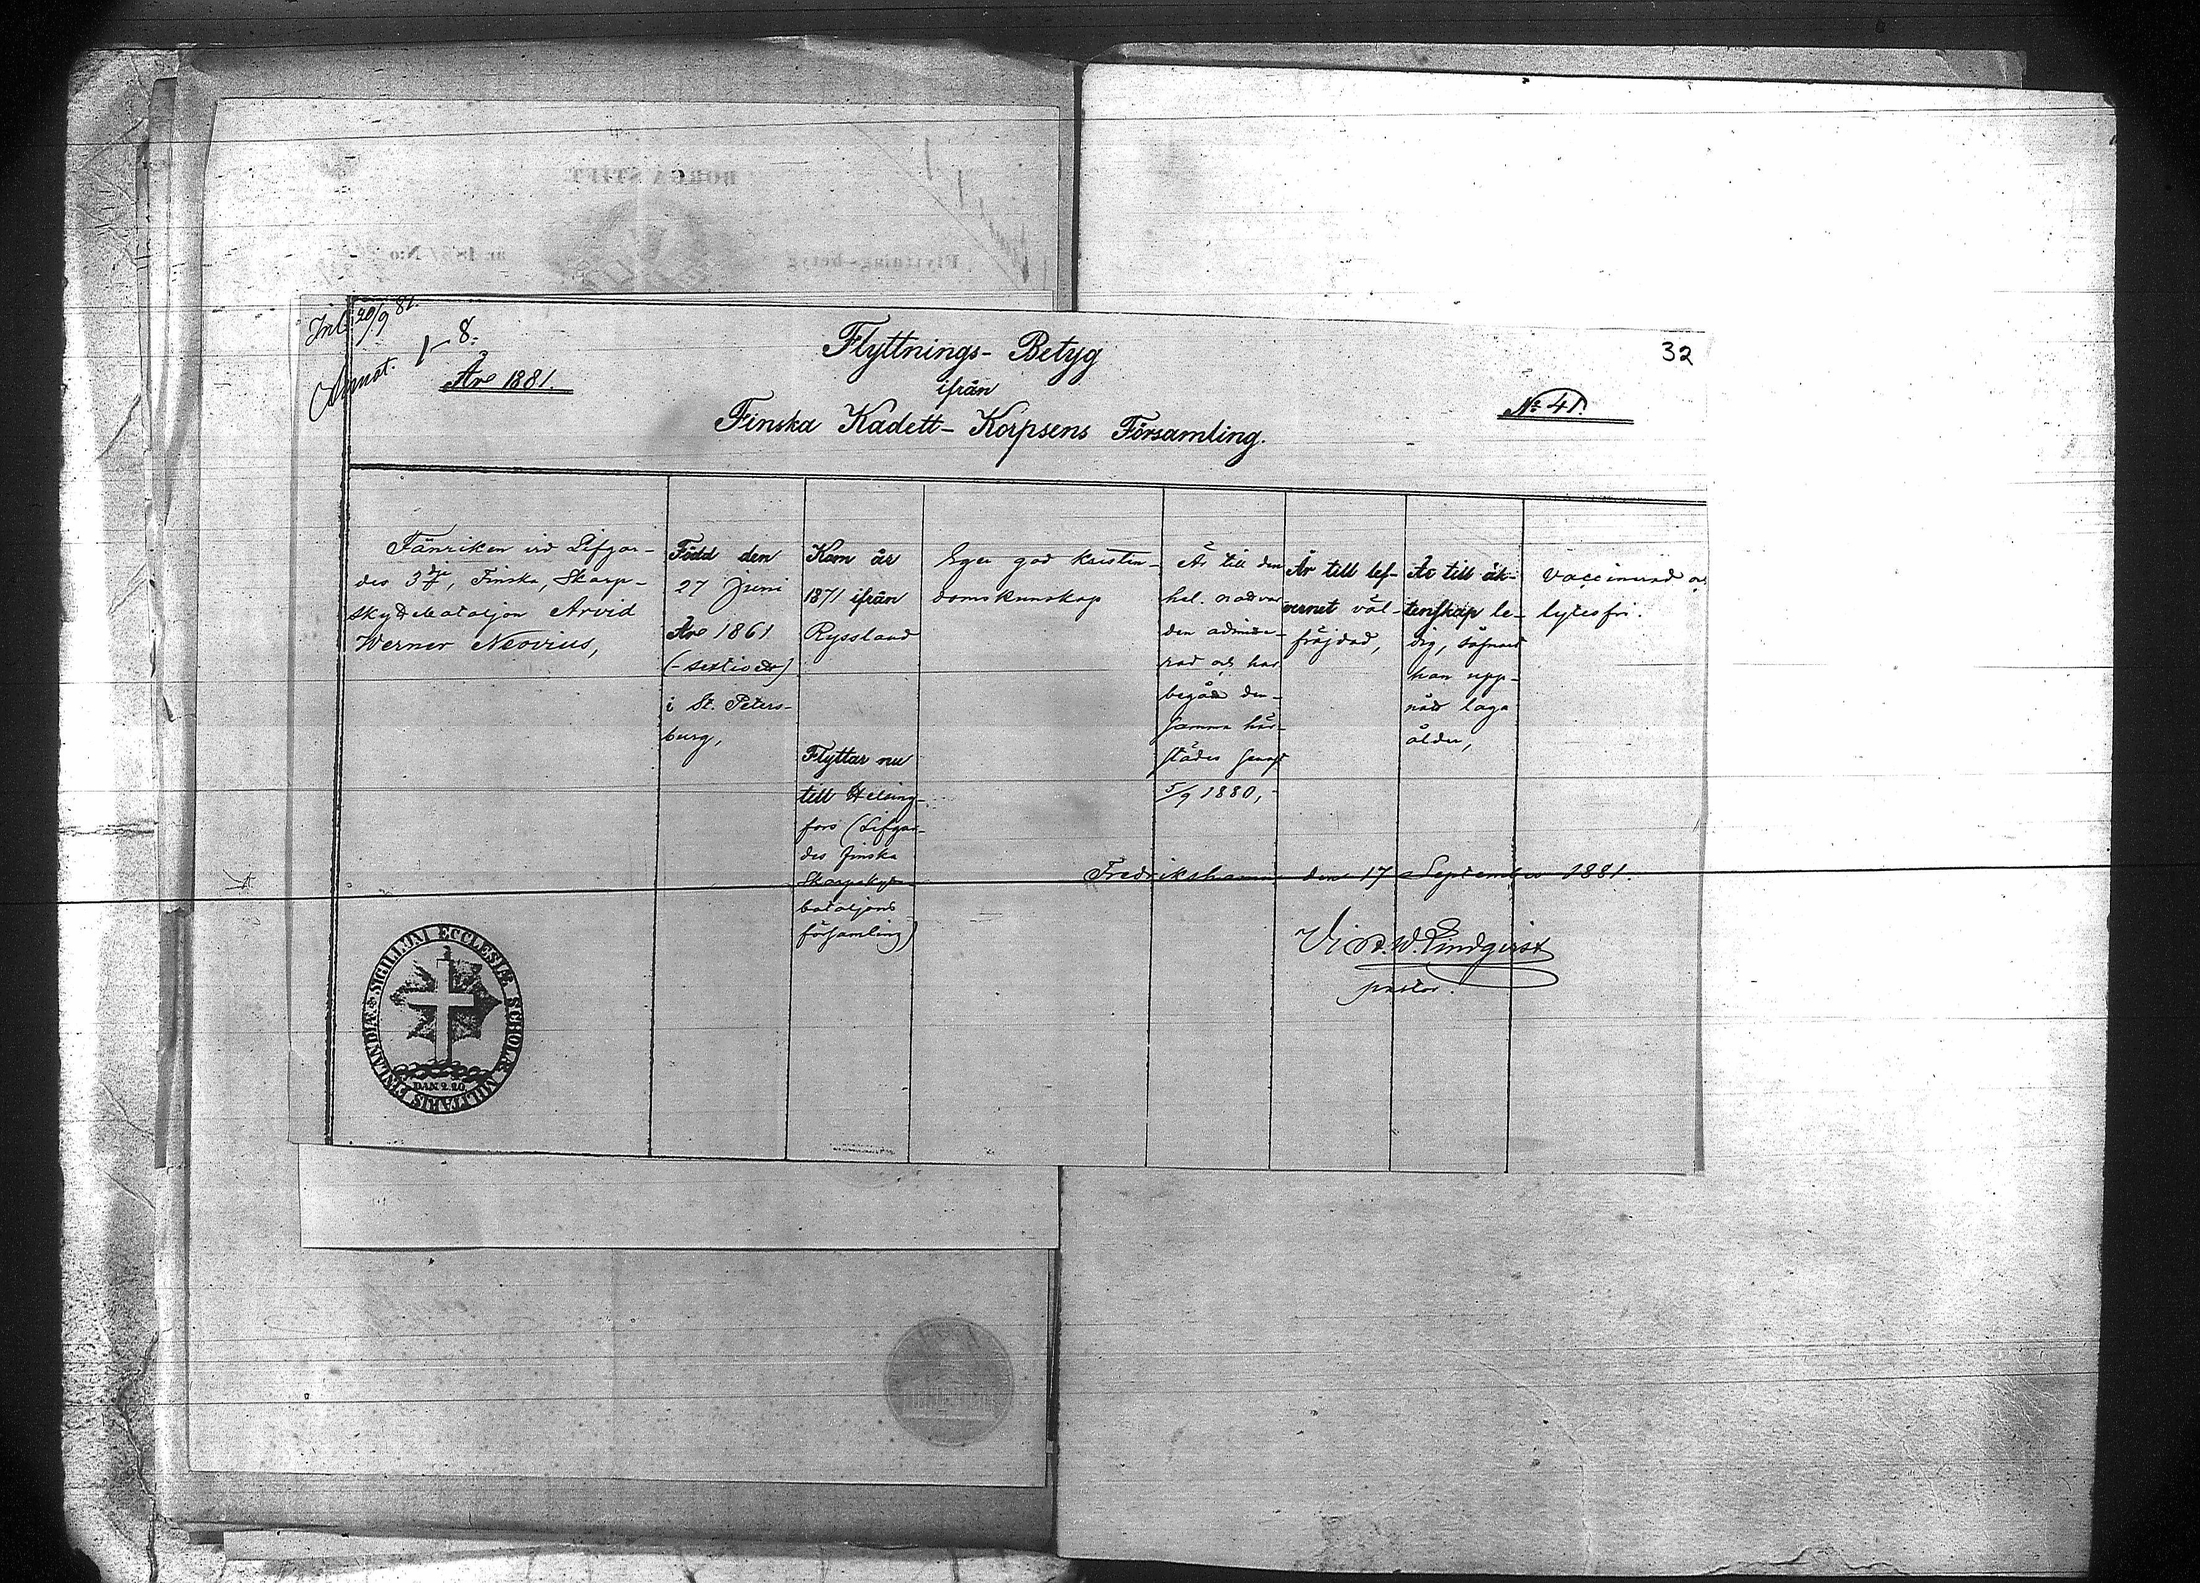 Inl. 20/9 81.
Annot.
1-8.
32
Flyttnings-Betyg
ifrån
Finska Kadett-Korpsens Församling.
År 1881.
No 41.
Fänriken vid Lifgar-
des 3dje, Finska, Skarp-
skyttebataljon Arvid
Werner Neovius,
Född den
27 Juni
År 1861
(-sextioett)
i St. Peters-
burg,
Kom år
1871 ifrån
Ryssland
Flyttar nu
till Helsing-
fors (Lifgar-
des finska
Skarpskytte-
bataljons
församling)
Eger god kristen-
domskunskap
Är till den
hel. nattvar
den admitte-
rad och har
begått den-
samma här-
städes senast
5/9 1880,
Är till lef-
vernet väl-
fräjdad,
Är till äk-
tenskap le-
dig, såframt
han upp-
nått laga
ålder,
Vaccinerad och
lytesfri.
Fredrikshamn den 17 September 1881.
Lindqvist
pastor.
SIGILLUM ECCLESIÆ SCHOLÆ MILITARIS FINLANDIÆ
DAN. 2. 20.
BORGÅ STIFT
Flyttnings-betyg
år 18 N:o